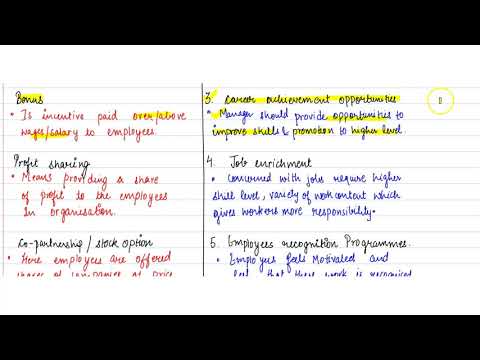 Bonus
• Is incentive paid over/above
wages/salary to employees.
Profit sharing
• Means providing a share
of profit to the employees
in organisation.
Co-partnership / stock option
• Here employees are offered
shares of companies at price
3. Career achievement opportunities
• Manager should provide opportunities to
improve skills & promotion to higher level
4. Job enrichment
• concerned with jobs require higher
skill level, variety of work content which
gives workers more responsibility.
5. Employees recognition Programmes.
• Employees feels Motivated and
feel that there work is recognised